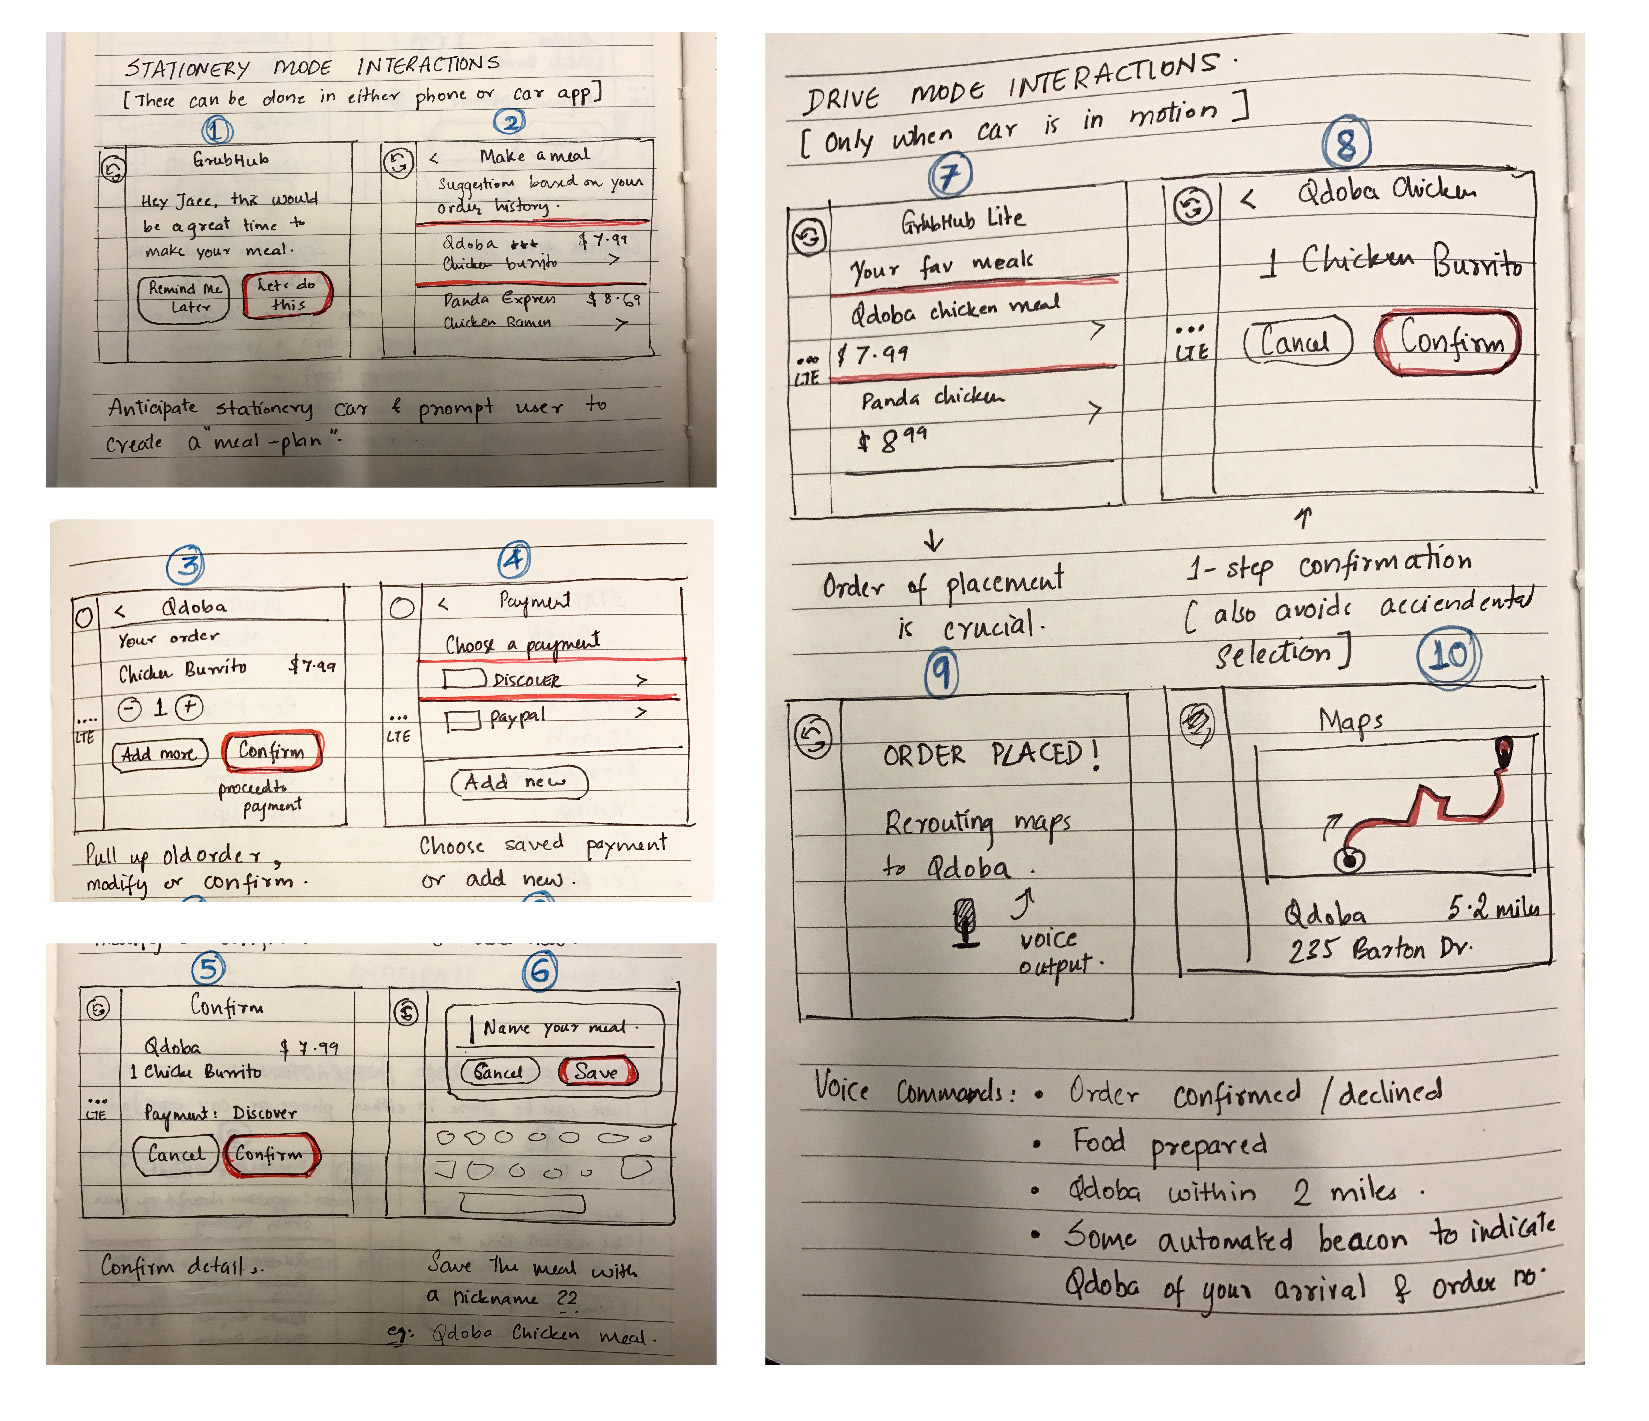 STATIONERY MODE INTERACTIONS
[These can be done in either phone or car app]
1
GrubHub
Hey Jace, this would
be a great time to
make your meal.
Remind me
Later
Lets do
this
2
< Make a meal
Suggestions based on your
order history.
Qdoba *** $7.99
Chicken burrito >
Panda Express $8.69
Chicken Ramen >
Anticipate stationery car & prompt user to
create a "meal-plan".
3
< Qdoba
Your order
Chicken Burrito $7.99
- 1 +
LTE
Add more
Confirm
proceed to
payment
Pull up old order,
modify or confirm.
4
< Payment
Choose a payment
DISCOVER >
paypal >
LTE
Add new
Choose saved payment
or add new.
5
Confirm
Qdoba $7.99
1 Chicken Burrito
LTE
Payment: Discover
Cancel
Confirm
Confirm details.
6
Name your meal.
Cancel
Save
Save the meal with
a nickname ??
eg: Qdoba Chicken meal.
DRIVE MODE INTERACTIONS.
[Only when car is in motion]
7
GrubHub Lite
Your fav meals
Qdoba chicken meal
>
$7.99
LTE
Panda chicken
>
$8 99
↓
Order of placement
is crucial.
8
< Qdoba Chicken
1 Chicken Burrito
LTE
Cancel
Confirm
↑
1-step confirmation
[also avoids acciendental
selection]
9
ORDER PLACED!
Rerouting maps
to Qdoba.
voice
output.
10
Maps
Qdoba 5.2 miles
235 Barton Dr.
Voice Commands: • Order confirmed / declined
• Food prepared
• Qdoba within 2 miles.
• Some automated beacon to indicate
Qdoba of your arrival & order no.